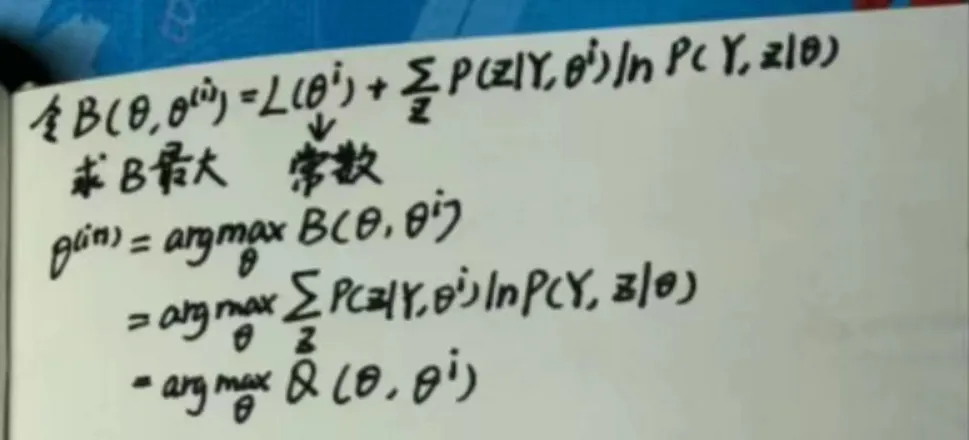 令 B(θ, θ⁽ⁱ⁾) = L(θⁱ) + ∑_Z P(Z|Y, θⁱ) ln P(Y, Z|θ)
求 B 最大 ↓ 常数
θ⁽ⁱ⁺¹⁾ = arg max_θ B(θ, θⁱ)
= arg max_θ ∑_Z P(Z|Y, θⁱ) ln P(Y, Z|θ)
= arg max_θ Q(θ, θⁱ)